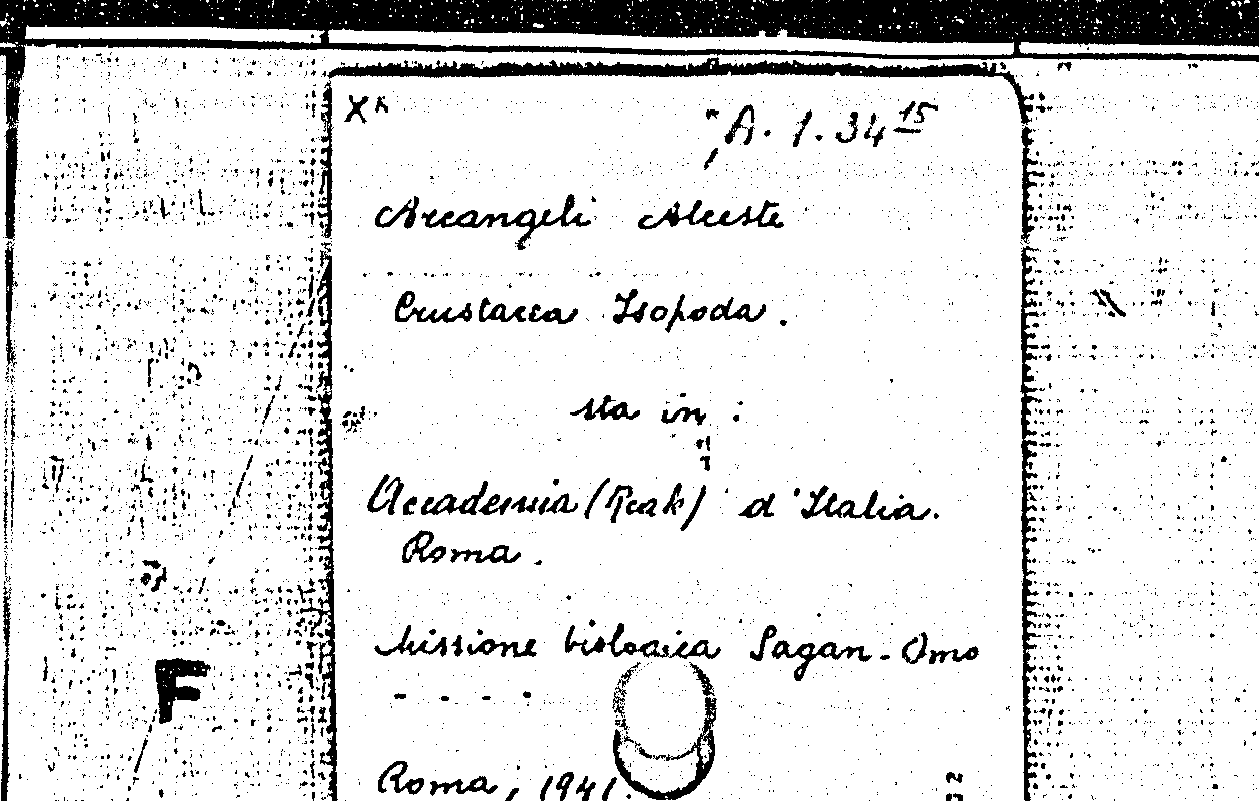 A. 1.34 15
Arcangeli Alceste
Crustacea Isopoda.
sta in :
Accademia (Reale) d'Italia.
Roma.
Missione biologica Sagan-Omo
- - - -
Roma, 1941.
F